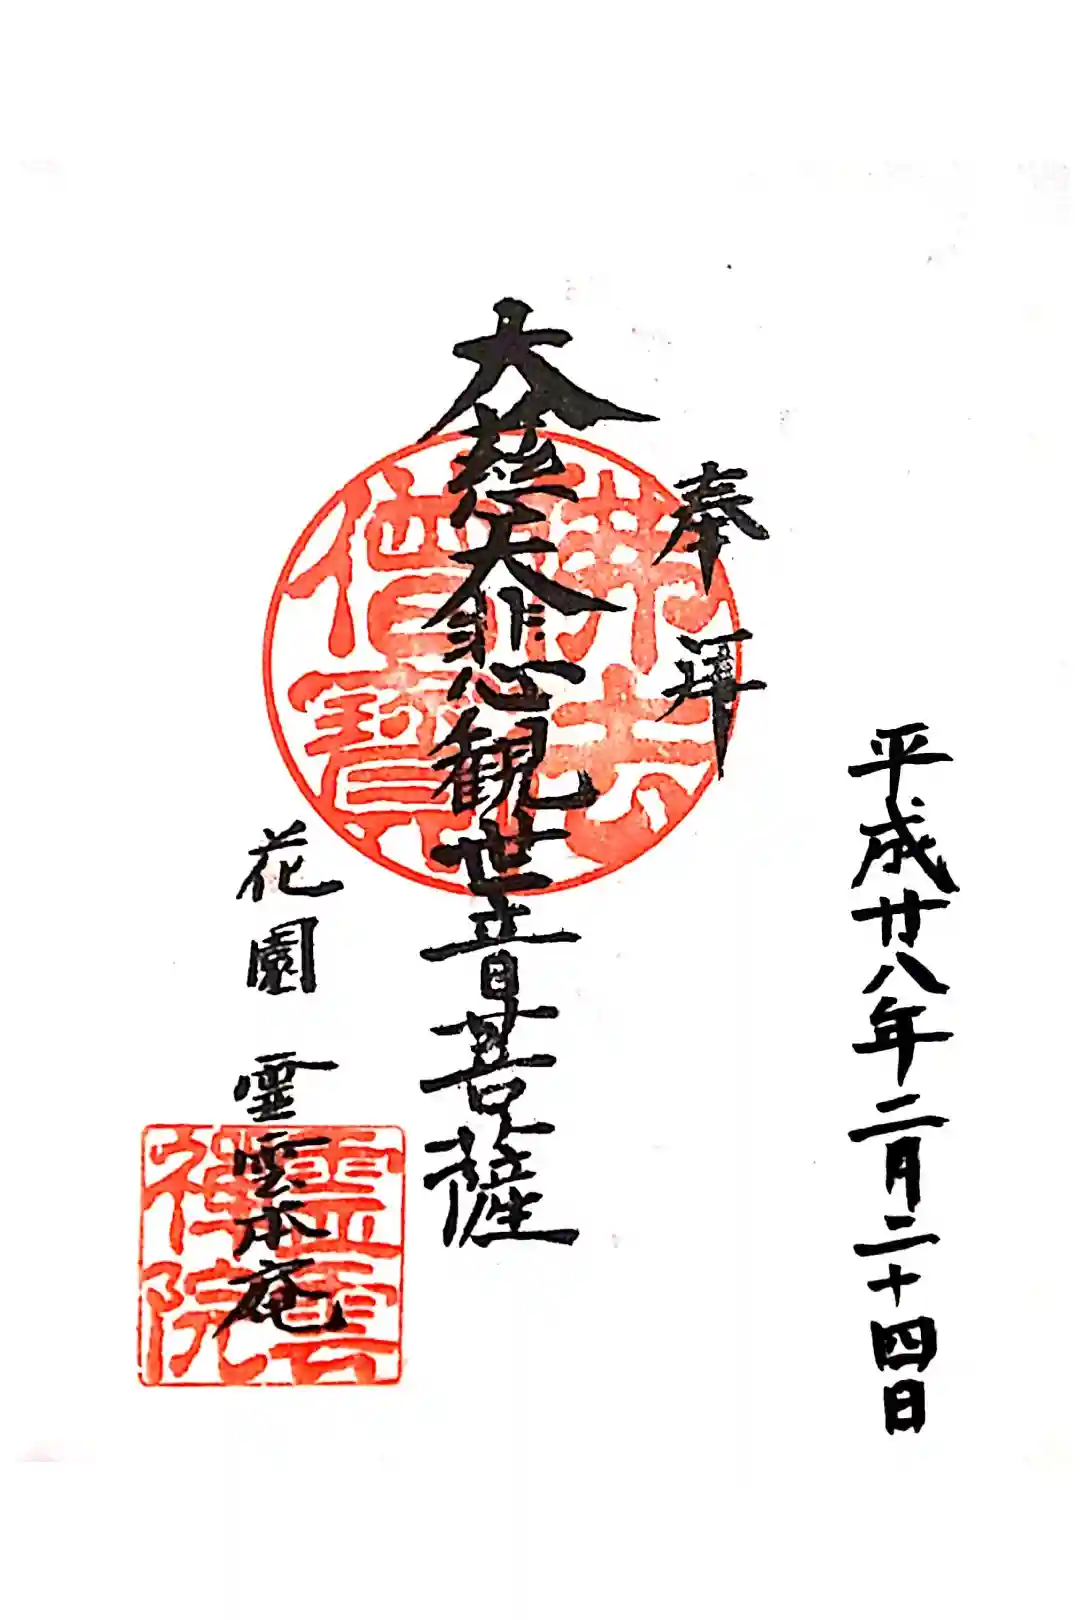 平成廿八年二月二十四日
奉拝
大慈大悲観世音菩薩
花園 霊雲本庵
佛法僧寶
霊雲禅院